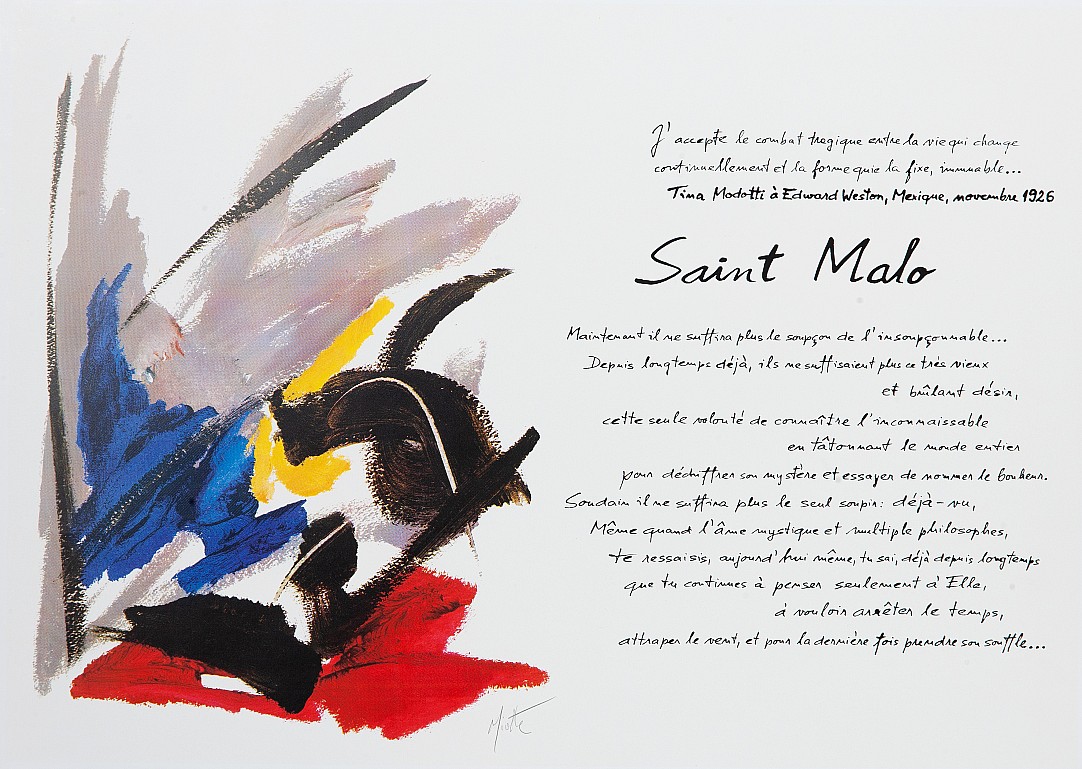 J'accepte le combat tragique entre la vie qui change
continuellement et la forme quie la fixe, immuable...
Tina Modotti à Edward Weston, Mexique, novembre 1926
Saint Malo
Maintenant il ne suffira plus le soupçon de l'insoupçonnable...
Depuis longtemps déjà, ils ne suffisaient plus ce très vieux
et brûlant désir,
cette seule volonté de connaître l'inconnaissable
en tâtonnant le monde entier
pour déchiffrer son mystère et essayer de nommer le bonheur.
Soudain il ne suffira plus le seul soupir: déjà-vu,
Même quand l'âme mystique et multiple philosophes,
te ressaisis, aujourd'hui même, tu sai, déjà depuis longtemps
que tu continues à penser seulement à Elle,
à vouloir arrêter le temps,
attraper le vent, et pour la dernière fois prendre son souffle...
Miotte